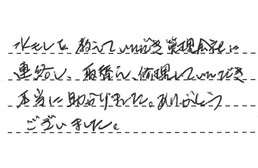 水もしを 教えていただき 管理会社に
連絡し、取替え、修理していただき
本当に助かりました。ありがとう
ございました。